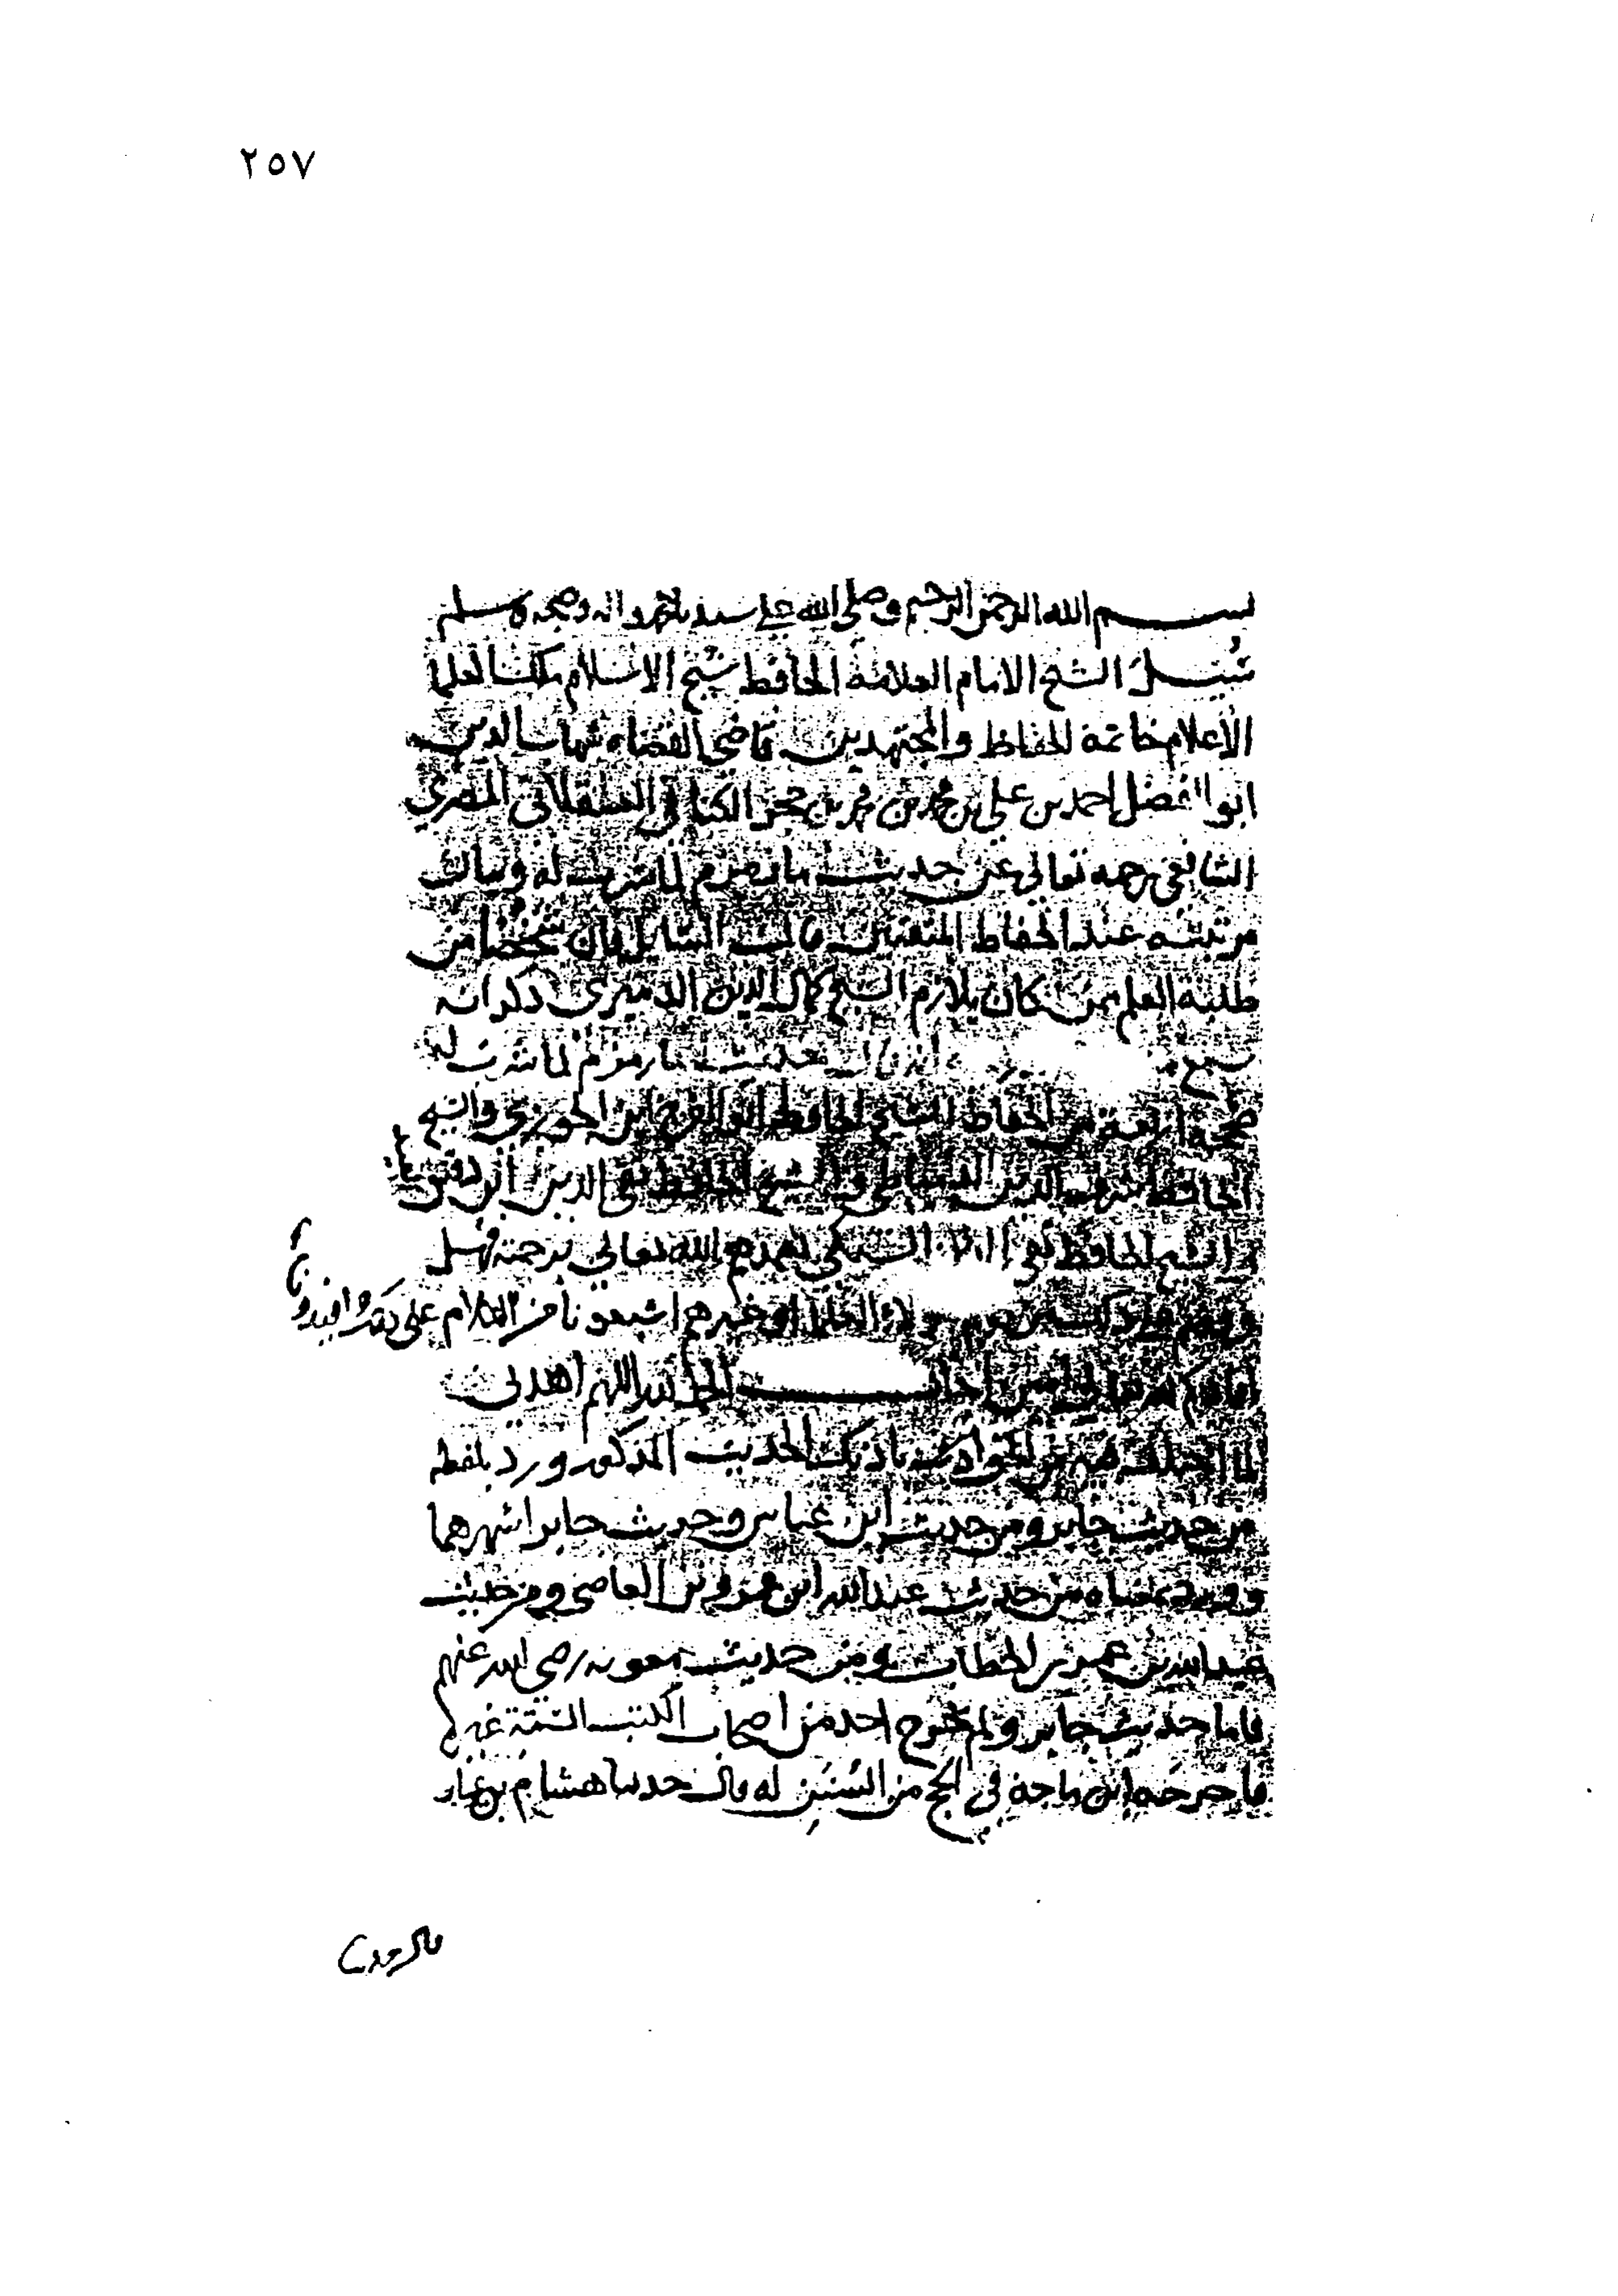 ٢٥٧
بسم الله الرحمن الرحيم وصلى الله على سيدنا محمد واله وصحبه وسلم
سئل الشيخ الامام العلامة الحافظ شيخ الاسلام ملك العلما
الاعلام خاتمة الحفاظ والمجتهدين قاضي القضاه شهاب الدين
ابو الفضل احمد بن علي بن محمد بن محمد بن حجر الكناني العسقلاني المصري
الشافعي رحمه تعالى عن حديث ما زمزم لما شرب له وبيان
مرتبته عند الحفاظ المتقنين قال السايل فان شخصا من
طلبه العلم ممن كان يلازم الشيخ كمال الدين الدميري ذكر انه
سمع حديث ما زمزم لما شرب له
صححه اربعة من الحفاظ الشيخ الحافظ ابو الفرج ابن الجوزي والشيخ
الحافظ شرف الدين الدمياطي والشيخ الحافظ تقي الدين ابن دقيق
والشيخ الحافظ تقي الدين السبكي تغمدهم الله تعالى برحمته فهل
العلما او غيرهم اشبعونا من الكلام على ذلك وافيدونا
الحمد لله اللهم اهدني
لما اختلف فيه من الحق باذنك الحديث المذكور ورد بلفظه
من حديث جابر ومن حديث ابن عباس وحديث جابر اشهرهما
وورد بمعناه من حديث عبد الله ابن عمرو بن العاصي ومن حديث
عبد الله بن عمر بن الخطاب ومن حديث معويه رضي الله عنهم
فاما حديث جابر ولم يخرج احد من اصحاب الكتب الستة غيره
فاخرجه ابن ماجة في الحج من السنن له قال حدثنا هشام بن عمار